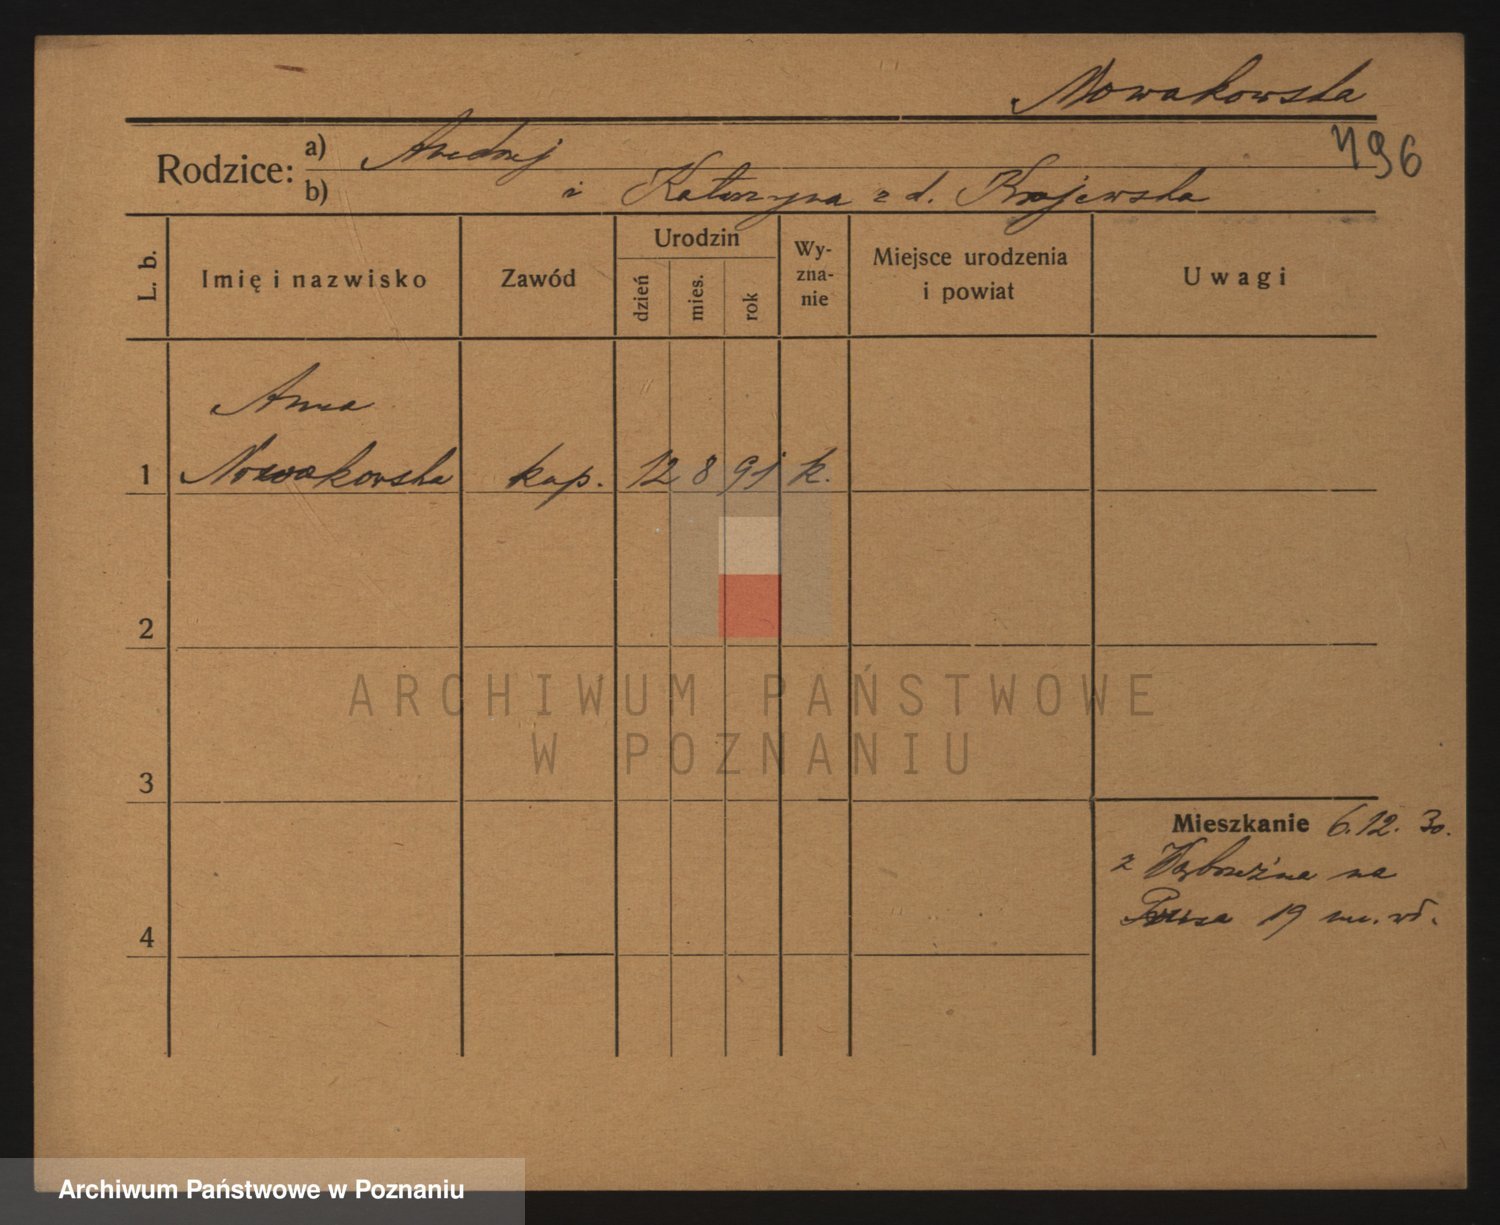 Nowakowska
496
Rodzice: a) Andrzej
b) i Katarzyna z d. Krajewska
L. b.
Imię i nazwisko
Zawód
Urodzin
dzień
mies.
rok
Wy-
zna-
nie
Miejsce urodzenia
i powiat
Uwagi
Anna
1 Nowakowska kup. 12 8 91 k.
2
3
4
Mieszkanie 6.12.30.
z na
Prusa 19 m.
ARCHIWUM PAŃSTWOWE
W POZNANIU
Archiwum Państwowe w Poznaniu